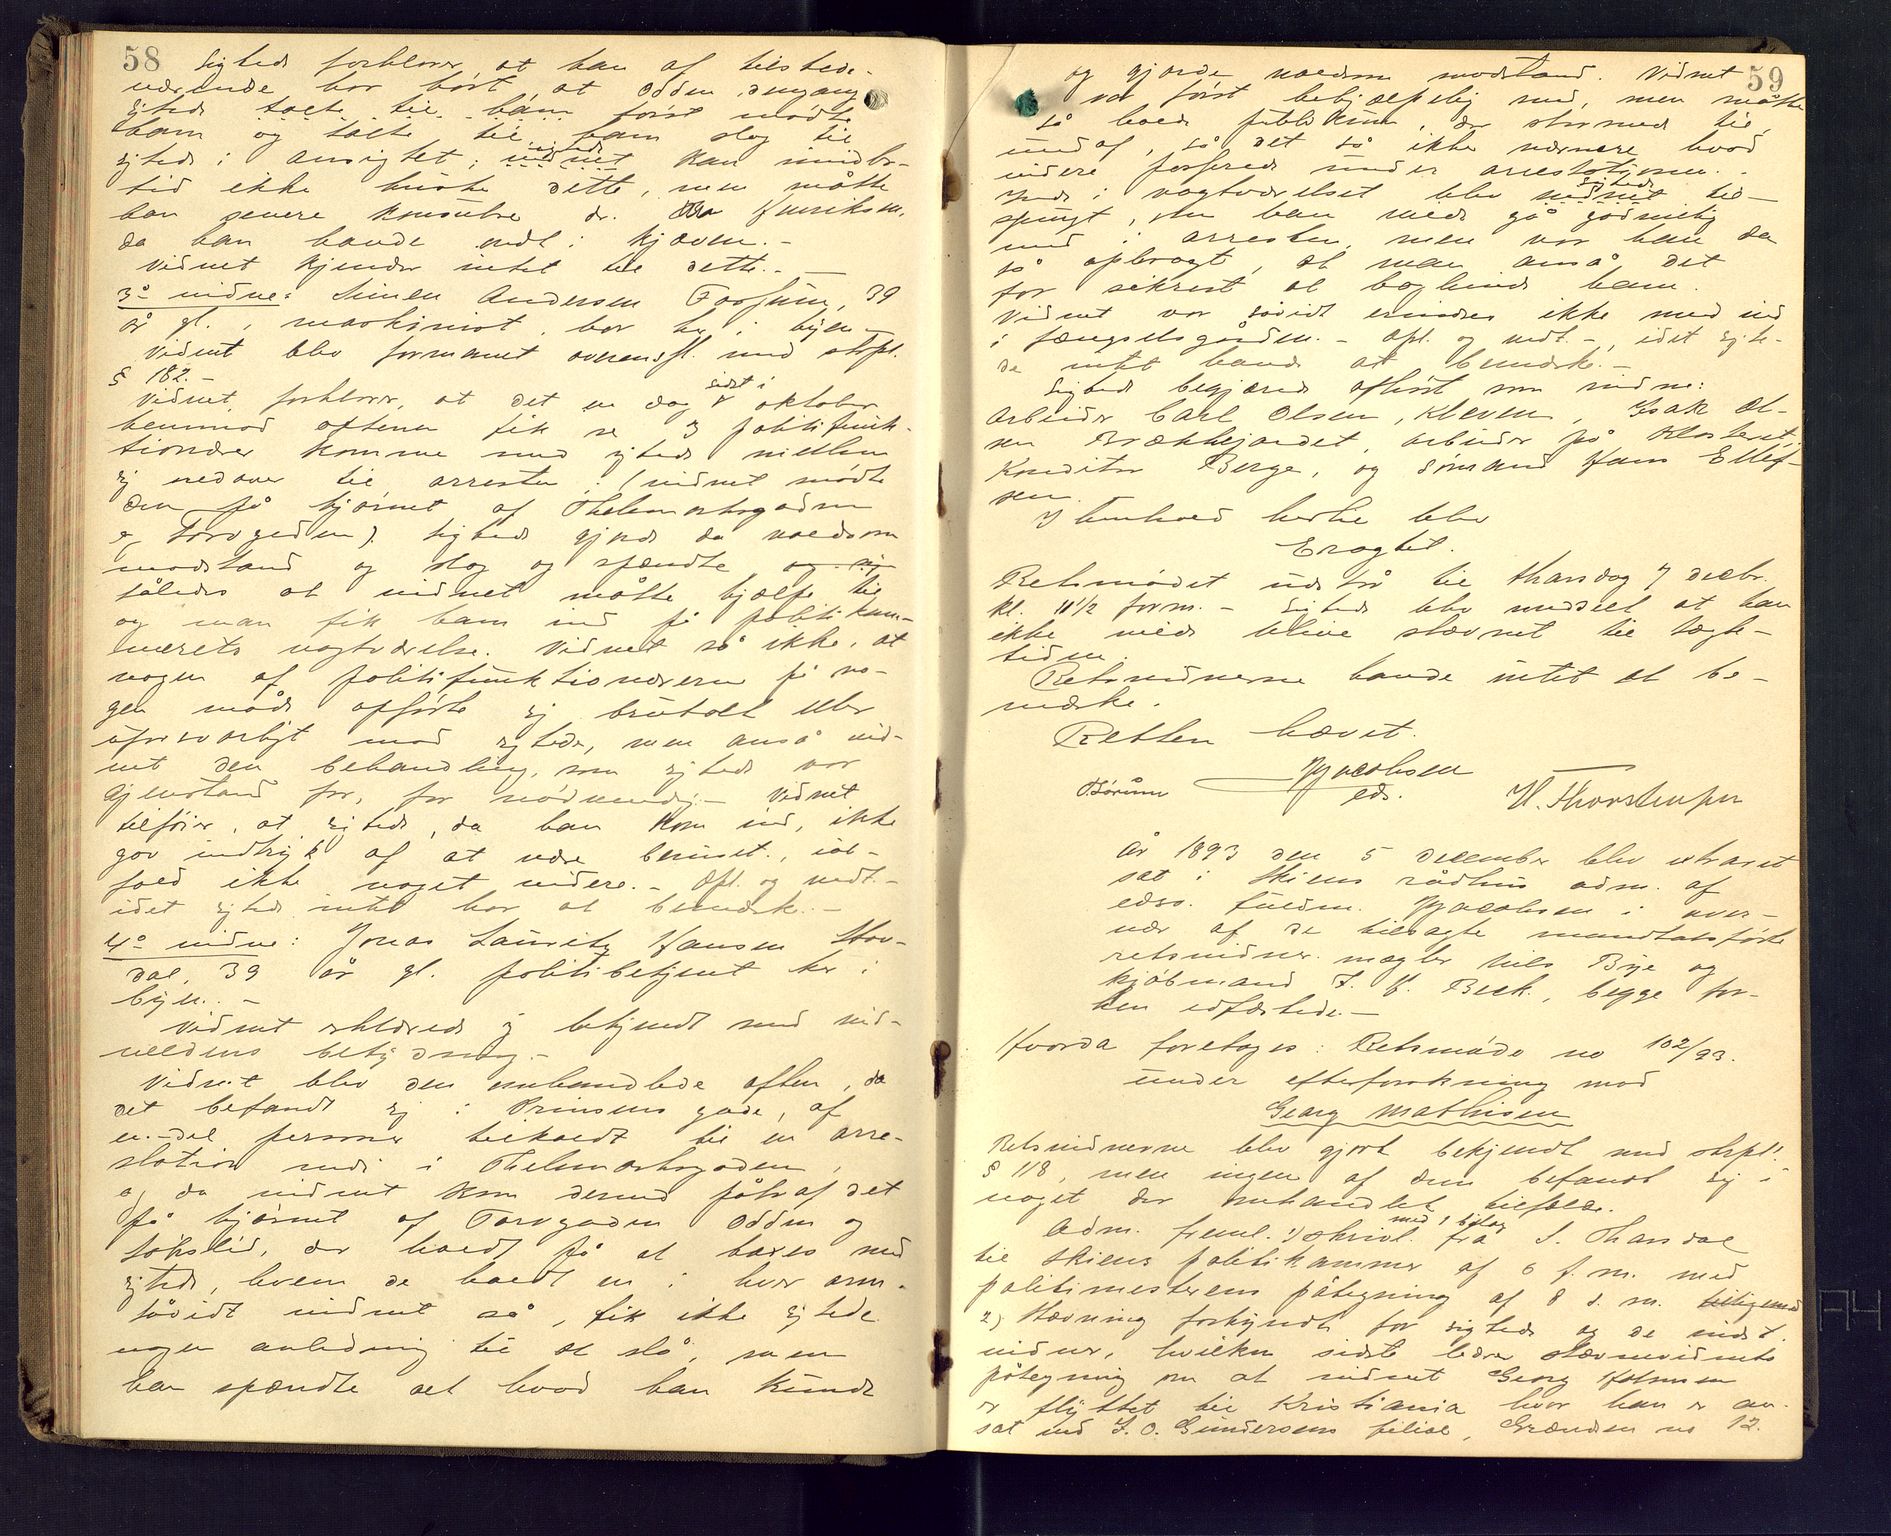 58
Sigtede forklarer at han af tilstede-
værende har hørt, at Odden dengang
sigtede talte til ham først mødte
ham og talte til ham slog til
sigtede i ansigtet; sigtede vidnet kan imidler-
tid ikke huske dette, men måtte
han senere konsulere dr. Henriksen,
da han havde ondt i kjæven. -
Vidnet kjender intet til dette. -
3° vidne: Simen Andersen Fossum, 39
år gl., maskinist, bor her i byen -
Vidnet blev formanet overensst. med strpl.
§ 182. -
Vidnet forklarer, at det en dag sidst i oktober
henimod aftenen fik se 3 politifunk-
tionærer komme med sigtede mellem
sig nedover til arresten; (vidnet mødte
dem på hjørnet af Thelemarksgaden
og Torvgaden). Sigtede gjorde da voldsom
modstand og slog og spændte og sig
således at vidnet måtte hjælpe til
og man fik ham ind på politikam-
merets vagtværelse. Vidnet så ikke, at
nogen af politifunktionærerne på no-
gen måde opførte sig brutalt eller
uforsvarligt mod sigtede, men anså vid-
net den behandling, som sigtede var
gjenstand for, for nødvendig. - Vidnet
tilføier, at sigtede, da han kom ind, ikke
gav indtryk af at være beruset, ial-
fald ikke noget videre. - Opl. og vedt. -
idet sigtede intet har at bemærke. -
4° vidne: Jonas Lauritz Hansen Hov-
dal, 39 år gl. politibetjent her i
byen. -
Vidnet erklærede sig bekjendt med vid-
needens betydning. -
Vidnet blev den omhandlede aften, da
det befandt sig i Prinsens gade, af
en del personer tilkaldt til en arre-
station nede i Thelemarksgaden,
og da vidnet kom derned påtraf det
på hjørnet af Torvgaden Odden og
Løkslid, der holdt på at baxes med
sigtede, hvem de holdt en i hver arm.
Såvidt vidnet så, fik ikke sigtede
nogen anledning til at slå, men
han spændte alt hvad han kunde
59
og gjorde voldsom modstand. Vidnet
var først behjælpelig med, men måtte
så holde publikum, der stormed til,
unda f, så det så ikke nærmere hvad
videre passerede under arrestationen. -
Inde i vagtværelset blev sigtede vidnet til-
spurgt, om han vilde gå godvillig
ned i arresten, men var han da
så opbragt, at man anså det
for sikrest at bagbinde ham.
Vidnet var såvidt erindres ikke med ind
i fængselsgården. - Opl. og vedt. -, idet sigte-
de intet havde at bemærke. -
Sigtede begjærede afhørt som vidne:
Arbeider Carl Olsen, Kleven, Isak Ol-
sen Brækkejordet, arbeider på Klosteret,
Konditor Berge, og sømand Hans Ellef-
sen.
I henhold hertil blev
Eragtet.
Retsmødet udstår til thorsdag 7 decbr.
kl. 11 1/2 form. - Sigtede blev meddelt at han
ikke vilde blive stævnet til tægte-
tiden.
Retsvidnerne havde intet at be-
mærke.
Retten hævet.
HJacobsen
eds.
Børum
H. Thorstensen
År 1893 den 5 december blev extraret
sat i Skiens rådhus adm. af
edsv. fuldm. HJacobsen i over-
vær af de tilsagte mandtalsførte
retsvidner mægler Nils Bye og
kjøbmand J. H. Beck, begge for-
hen edfæstede. -
Hvorda foretoges: Retsmøde no 102/93.
under efterforskning mod
Georg Mathisen
Retsvidnerne blev gjort bekjendt med strpl.
§ 118, men ingen af dem befandt sig i
noget der omhandlet tilfælde.
Adm. freml. 1) skrivl. med 1 bilag frå S. Thardal
til Skiens politikammer af 6 f.m. med
politimesterens påtegning af 8 s. m.
2) Stævning forkyndt for sigtede og de indst.
vidner, hvilken sidste bærer stævnevidnets
påtegning om at vidnet Georg
er flyttet til Kristiania hvor han er an-
sat ved J. O. Gundersens filial, Grændsen no 12.